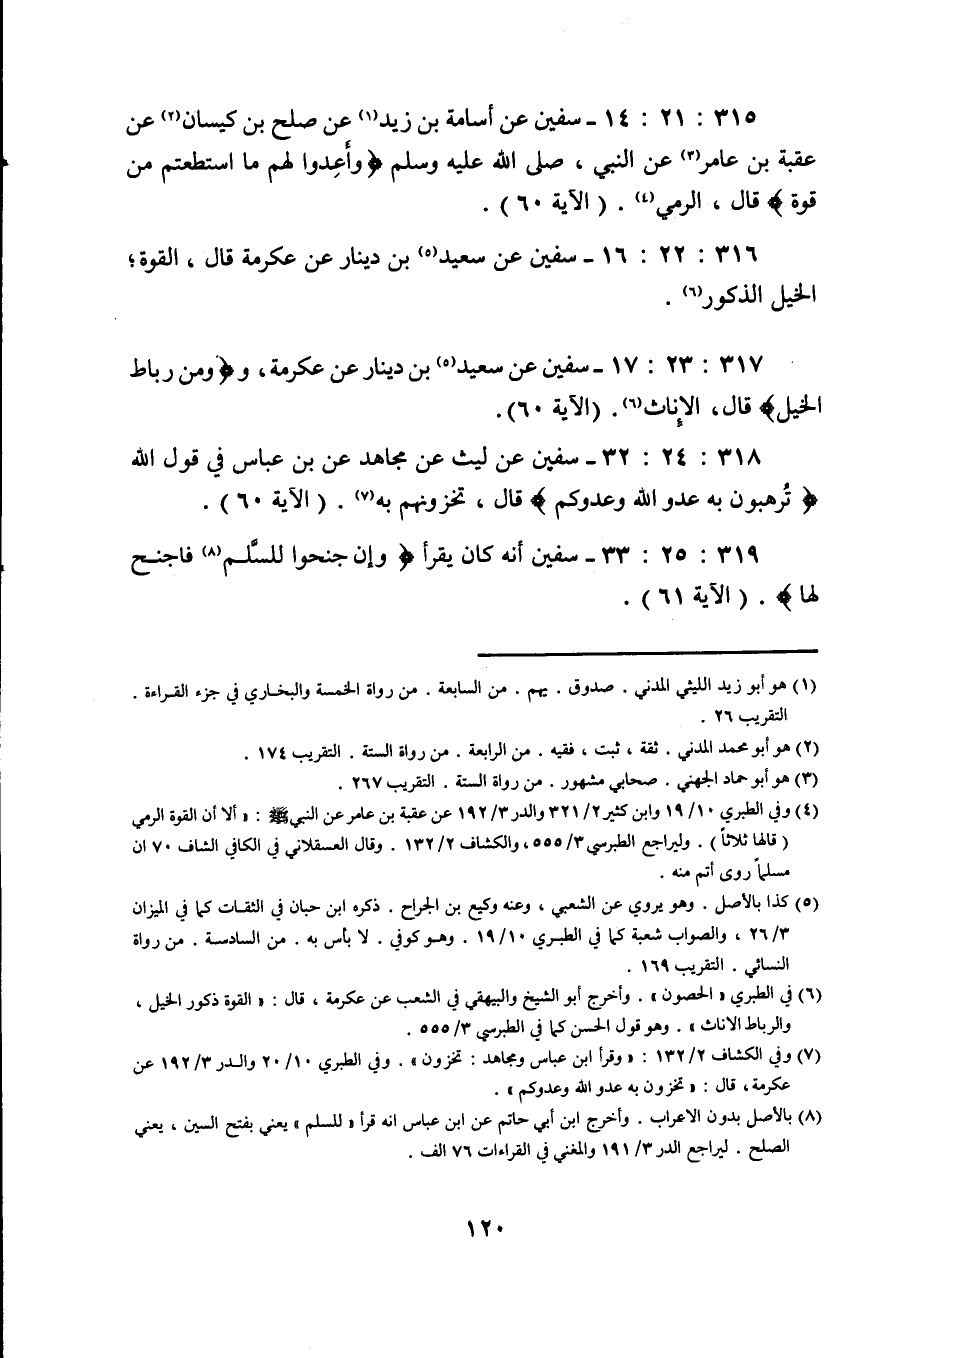 ٣١٥ : ٢١ : ١٤ ـ سفين عن أسامة بن زيد(١) عن صلح بن كيسان(٢) عن
عقبة بن عامر(٣) عن النبي ، صلى الله عليه وسلم ﴿ وأَعِدوا لهم ما استطعتم من
قوة ﴾ قال ، الرمي(٤) . ( الآية ٦٠ ) .
٣١٦ : ٢٢ : ١٦ ـ سفين عن سعيد(٥) بن دينار عن عكرمة قال ، القوة؛
الخيل الذكور(٦) .
٣١٧ : ٢٣ : ١٧ ـ سفين عن سعيد(٥) بن دينار عن عكرمة، و﴿ومن رباط
الخيل﴾ قال، الإِناث(٦). (الآية ٦٠).
٣١٨ : ٢٤ : ٣٢ ـ سفين عن ليث عن مجاهد عن بن عباس في قول الله
﴿ تُرهبون به عدو الله وعدوكم ﴾ قال ، تخزونهم به(٧) . ( الآية ٦٠ ) .
٣١٩ : ٢٥ : ٣٣ ـ سفين أنه كان يقرأ ﴿ وإن جنحوا للسَّلم(٨) فاجنح
لها ﴾ . ( الآية ٦١ ) .
(١) هو أبو زيد الليثي المدني . صدوق . يهم . من السابعة . من رواة الخمسة والبخاري في جزء القراءة .
التقريب ٢٦ .
(٢) هو أبو محمد المدني . ثقة ، ثبت ، فقيه . من الرابعة . من رواة الستة . التقريب ١٧٤ .
(٣) هو أبو حماد الجهني . صحابي مشهور . من رواة الستة . التقريب ٢٦٧ .
(٤) وفي الطبري ١٩/١٠ وابن كثير ٣٢١/٢ والدر ١٩٢/٣ عن عقبة بن عامر عن النبي ﷺ : « ألا أن القوة الرمي
( قالها ثلاثاً ) . وليراجع الطبرسي ٥٥٥/٣، والكشاف ١٣٢/٢ . وقال العسقلاني في الكافي الشاف ٧٠ ان
مسلماً روى أتم منه .
(٥) كذا بالأصل . وهو يروي عن الشعبي ، وعنه وكيع بن الجراح . ذكره ابن حبان في الثقات كما في الميزان
٢٦/٣ ، والصواب شعبة كما في الطبري ١٩/١٠ . وهو كوفي . لا بأس به . من السادسة . من رواة
النسائي . التقريب ١٦٩ .
(٦) في الطبري « الحصون » . وأخرج أبو الشيخ والبيهقي في الشعب عن عكرمة ، قال : « القوة ذكور الخيل ،
والرباط الاناث » . وهو قول الحسن كما في الطبرسي ٥٥٥/٣ .
(٧) وفي الكشاف ١٣٢/٢ : « وقرأ ابن عباس ومجاهد : تخزون » . وفي الطبري ٢٠/١٠ والدر ١٩٢/٣ عن
عكرمة، قال : « تخزون به عدو الله وعدوكم » .
(٨) بالأصل بدون الاعراب . وأخرج ابن أبي حاتم عن ابن عباس انه قرأ « للسلم » يعني بفتح السين ، يعني
الصلح . ليراجع الدر ١٩١/٣ والمغني في القراءات ٧٦ الف .
١٢٠